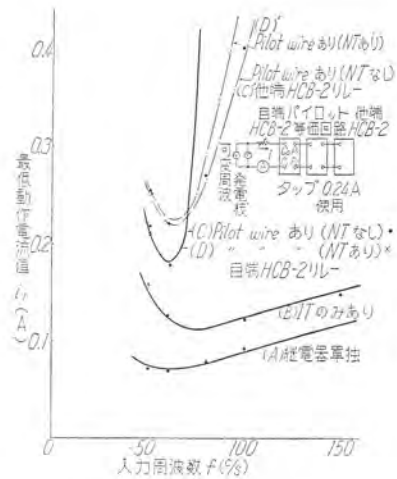 0.4
0.3
0.2
0.1
0
50
100
150
最低動作電流値 i₁ (A)
入力周波数 f (c/s)
(D)′
Pilot wire あり(NTあり)
Pilot wire あり(NTなし)
(C)′他端HCB-2リレー
自端 パイロット 他端
HCB-2 等価回路 HCB-2
可変周波
発電機
タップ 0.24A
使用
(C) Pilot wire あり (NTなし)•
(D) 〃 〃 〃 (NTあり)×
自端HCB-2リレー
(B) ITのみあり
(A) 継電器単独